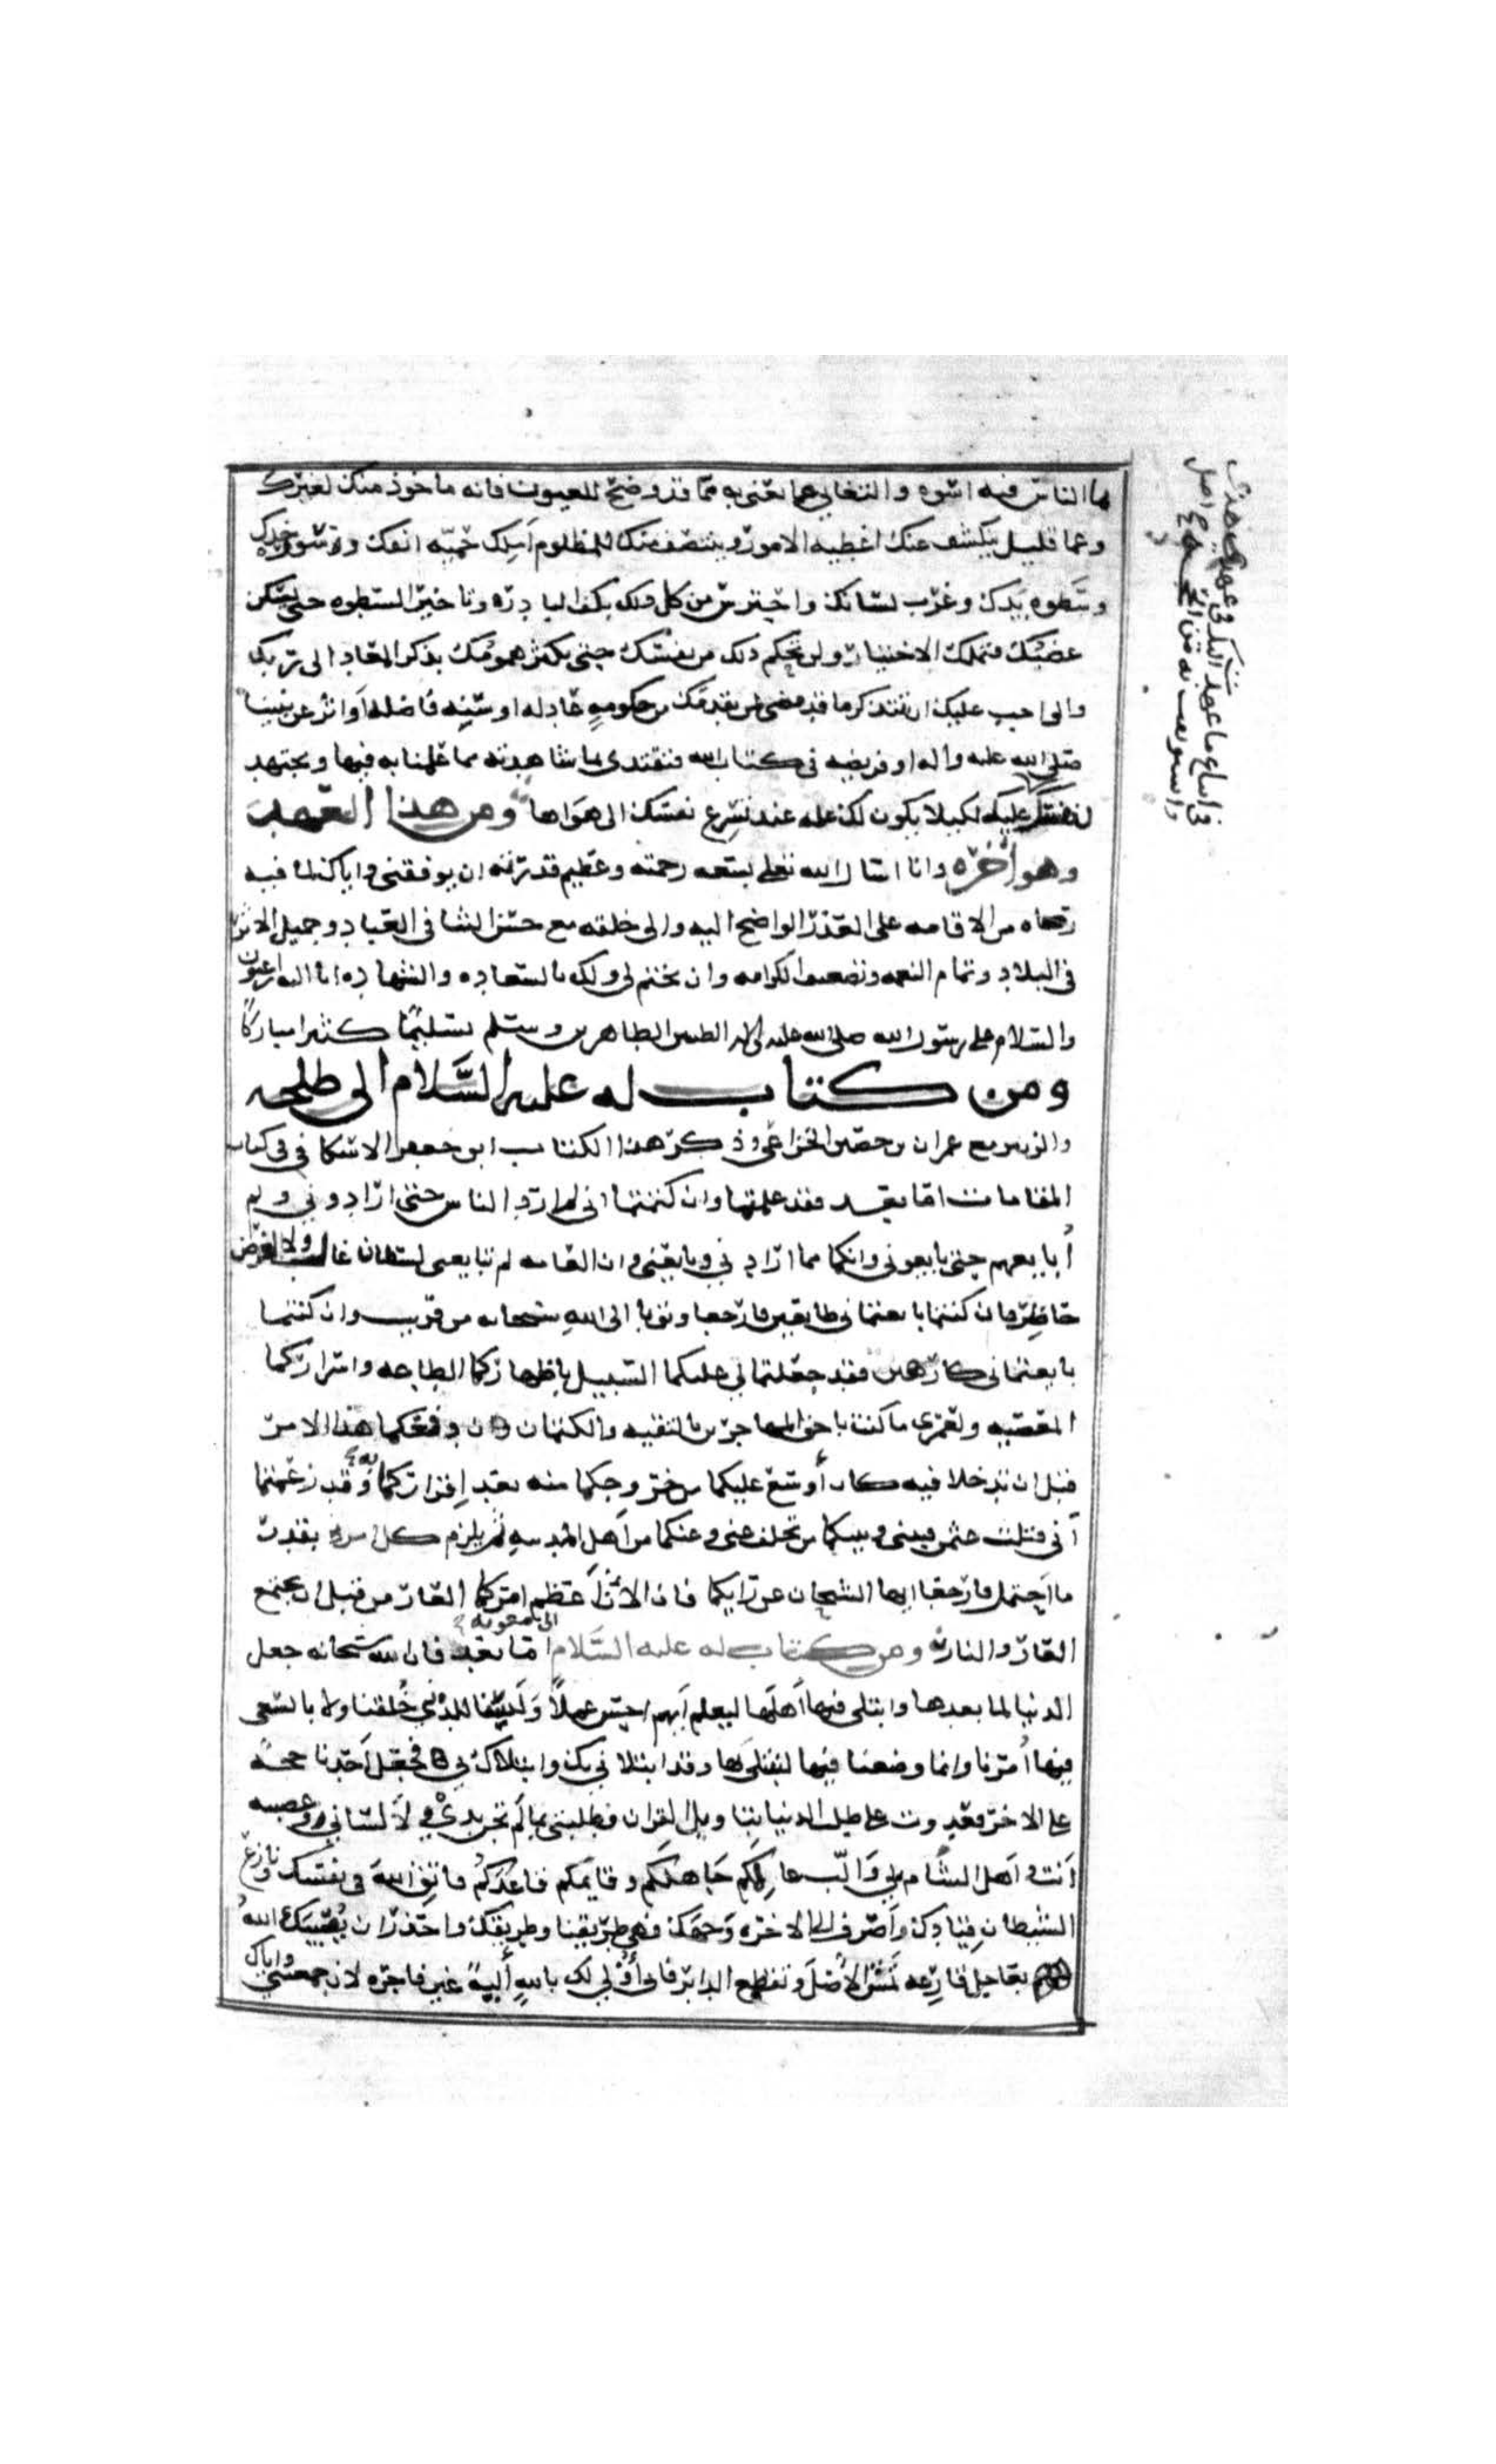 ما الناس فيه اسوه والتغابي عما تعنى به مما قد وضح للعيون فانه ماخوذ منك لغيرك
وعما قليل ينكشف عنك اغطيه الامور وينتصف منك للمظلوم املك حميه انفك وسوره حدك
وسطوه يدك وغرب لسانك واحترس من كل ذلك بكف البادره وتاخير السطوه حتى يسكن
غضبك فتملك الاختيار ولن تحكم ذلك من نفسك حتى تكثر همومك بذكر المعاد الى ربك
والواجب عليك ان تتذكر ما قد مضى لمن تقدمك من حكومهٍ عادله او سنه فاضله او اثر عن نبينا
صلى الله عليه واله او فريضه في كتاب الله فتقتدي بما شاهدته مما عملنا به فيها وتجتهد
عليك لكيلا يكون لك عله عند تسرع نفسك الى هواها ومن هذا العهد
وهو اخره وانا اسال الله تعلى بسعه رحمته وعظيم قدرته ان يوفقني واياك لما فيه
رضاه من الاقامه على العذر الواضح اليه والى خلقه مع حسن الثنا في العباد وجميل الاثر
في البلاد وتمام النعمه وتضعيف الكرامه وان يختم لي ولك بالسعاده والشهاده انا اليه راغبون
والسلام على رسول الله صلى الله عليه واله الطيبين الطاهرين وسلم تسليمًا كثيرا مباركًا
ومن كتاب له عليه السَّلام الى طلحه
والزبير مع عمران بن حصين الخزاعي وذكر هذا الكتاب ابو جعفر الاسكافي في كتاب
المقامات اما بعد فقد علمتما وان كتمتما اني لم ارد الناس حتى ارادوني ولم
أبايعهم حتى بايعوني وانكما مما ارادني وبايعني وان العامه لم تبايعني لسلطان غالب ولا لعرض
حاضر فان كنتما بايعتماني طايعين فارجعا وتوبا الى اللهِ سبحانه من قريب وان كنتما
بايعتماني كارهين فقد جعلتما لي عليكما السبيل باظهاركما الطاعه واسراركما
المعصيه ولعمري ما كنتما باحق المهاجرين بالتقيه والكتمان وان دفعكما هذا الامر
قبل ان تدخلا فيه كان أوسع عليكما من خروجكما منه بعد إقراركما به وقد زعمتما
أني قتلت عثمن فبيني وبينكما من تخلف عني وعنكما من أهل المدينهِ ثم يلزم كل امرئ بقدر
ما احتمل فارجعا ايها الشيخان عن رايكما فان الآن أعظم امركما العار من قبل ان يجتمع
العار والنار ومن كتاب له عليه السَّلام الى معويه اما بعد فان الله سبحانه جعل
الدنيا لما بعدها وابتلى فيها أهلها ليعلم أيهم احسن عملاً وَلَسْنا للدنيا خُلقنا ولا بالسعي
فيها أمرنا وانما وضعنا فيها لنبتلى بها وقد ابتلاني بك وابتلاك بي فجعل أحدنا حجهً
على الاخر فعدوت على طلب الدنيا بتاويل القران وطلبتني بما لم تجن يدي ولا لساني وعصبته
أنت واهل الشام بي وَألّب عالمكم جاهلكم وقايمكم قاعدكُم فاتق اللهَ في نفسك ونازع
الشيطان قيادك واصرف الى الاخره وَجهك فهي طريقنا وطريقك واحذر ان يُصيبَك اللهُ
بعاجل قارعه تمس الأصلَ وتقطع الدابر فاني أُوْلي لك باللهِ أليةً غير فاجره لان جمعتني واياك